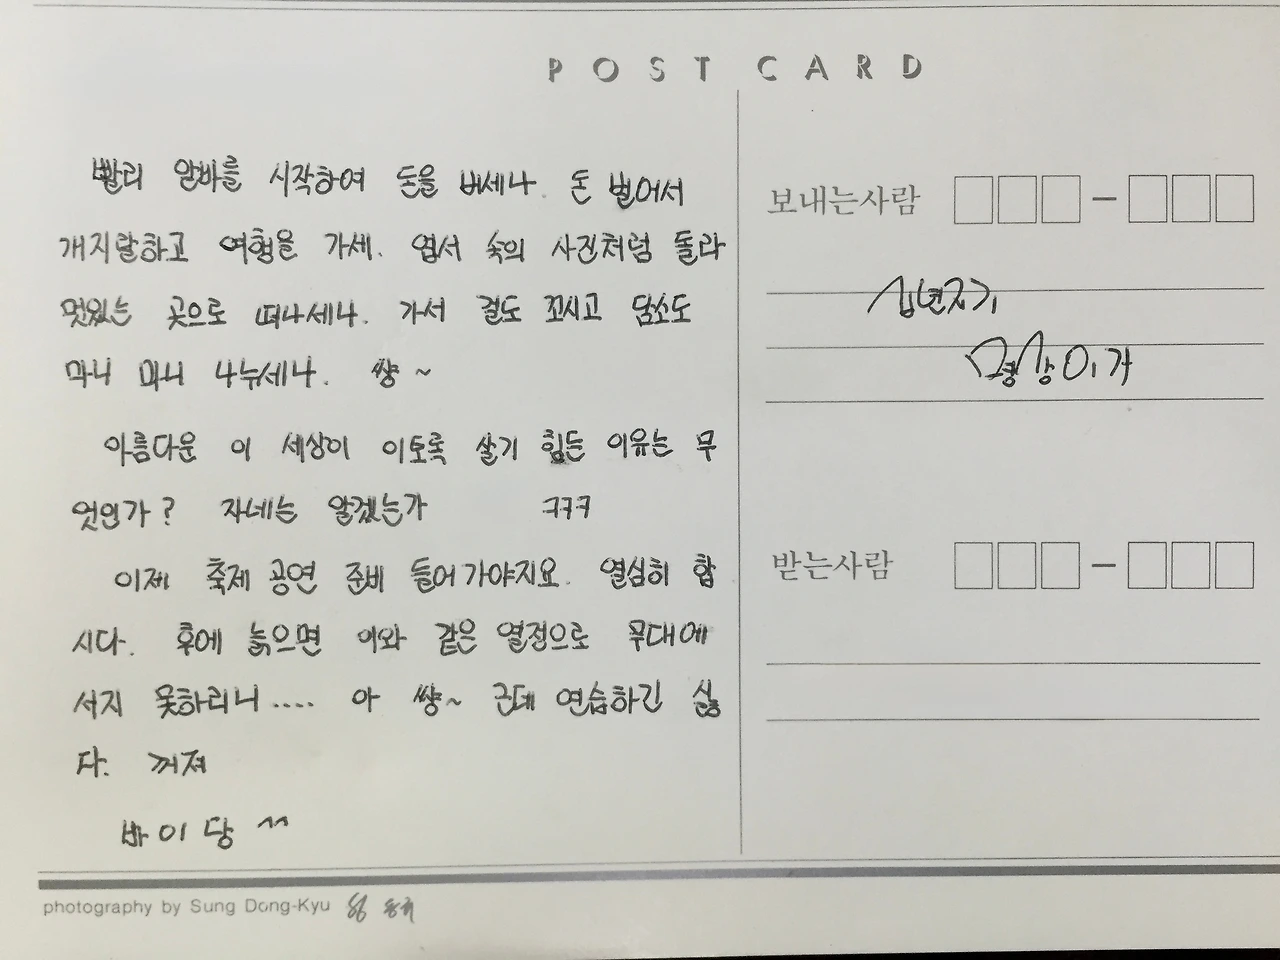 POST CARD
빨리 알바를 시작하여 돈을 버세나. 돈 벌어서
개지랄하고 여행을 가세. 엽서 속의 사진처럼 졸라
멋있는 곳으로 떠나세나. 가서 걸도 꼬시고 담소도
마니 마니 나누세나. 썅~
아름다운 이 세상이 이토록 살기 힘든 이유는 무
엇인가? 자네는 알겠는가 ㅋㅋㅋ
이제 축제 공연 준비 들어가야지요. 열심히 합
시다. 후에 늙으면 이와 같은 열정으로 무대에
서지 못하리니.... 아 썅~ 근데 연습하긴 싫
다. 꺼져
바이당 ^^
보내는사람
십년지기
이가
받는사람
photography by Sung Dong-Kyu